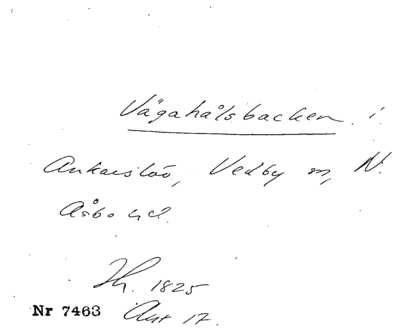 Vägahålsbacken i
Ankarslöv, Vedby sn, N.
Åsbo hd.
Ih. 1825
Nr 7463 Akt 17.